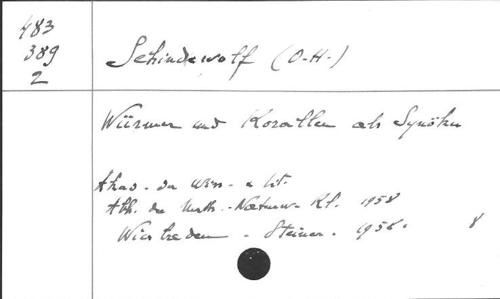 483
389
2
Schindewolf (O-H-)
Würmer und Korallen als Synöken
Akad. der Wiss. u. Lit.
Abh. der Math.-Naturw. Kl. 1958
Wiesbaden - Steiner. 1958.
8